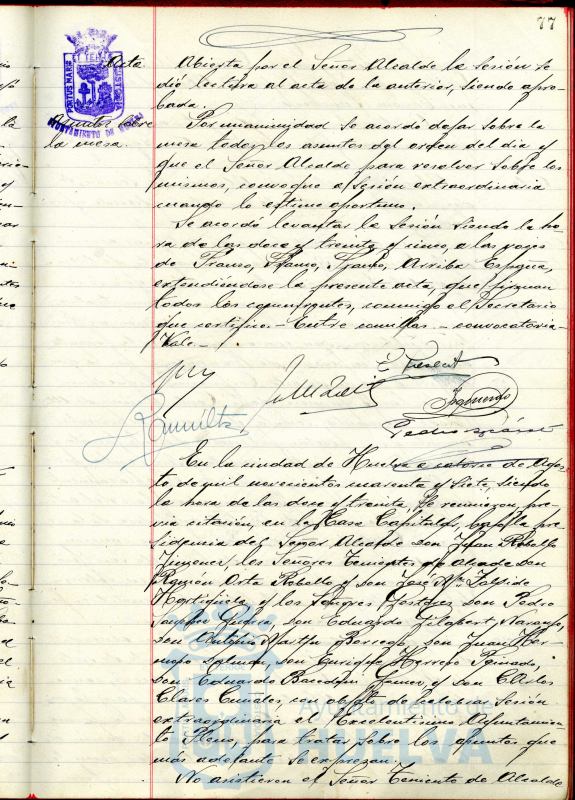 77
Acta.
Abierta por el Señor Alcalde la sesión se
dió lectura al acta de la anterior, siendo apro-
bada.
Asuntos sobre
la mesa.
Por unanimidad se acordó dejar sobre la
mesa todos los asuntos del orden del dia y
que el Señor Alcalde para resolver sobre los
mismos, convoque a sesión extraordinaria
cuando lo estime oportuno.
Se acordó levantar la Sesión siendo la ho-
ra de las doce y treinta y cinco, a las voces
de Franco, Franco, Franco, Arriba España,
extendiéndose la presente acta, que firman
todos los concurrentes, conmigo el Secretario
que certifico.- Entre comillas - convocatoria-
Vale.-
Izquierdo
Pedro
En la ciudad de Huelva a catorce de Agos-
to, de mil novecientos cuarenta y siete, siendo
la hora de las doce y treinta, se reunieron, pre-
via citación, en la Casa Capitular, bajo la pre-
sidencia del Señor Alcalde don Juan Rebollo
Jimenez, los Señores Tenientes de Alcalde don
Ramón Orta Rebollo y don José Mª
y los Señores Gestores don Pedro
don Eduardo Gilabert Naranjo,
don Antonio Martín Borrego, don Juan
don Enrique
don Eduardo y don Carlos
Clares con objeto de celebrar Sesión
extraordinaria el Excelentísimo Ayuntamien-
to Pleno, para tratar sobre los asuntos que
mas adelante se expresan.
No asistieron el Señor Teniente de Alcalde
PORTUS MARIS ET TERRAE CUSTODIA
AYUNTAMIENTO DE HUELVA
Ayuntamiento de
HUELVA